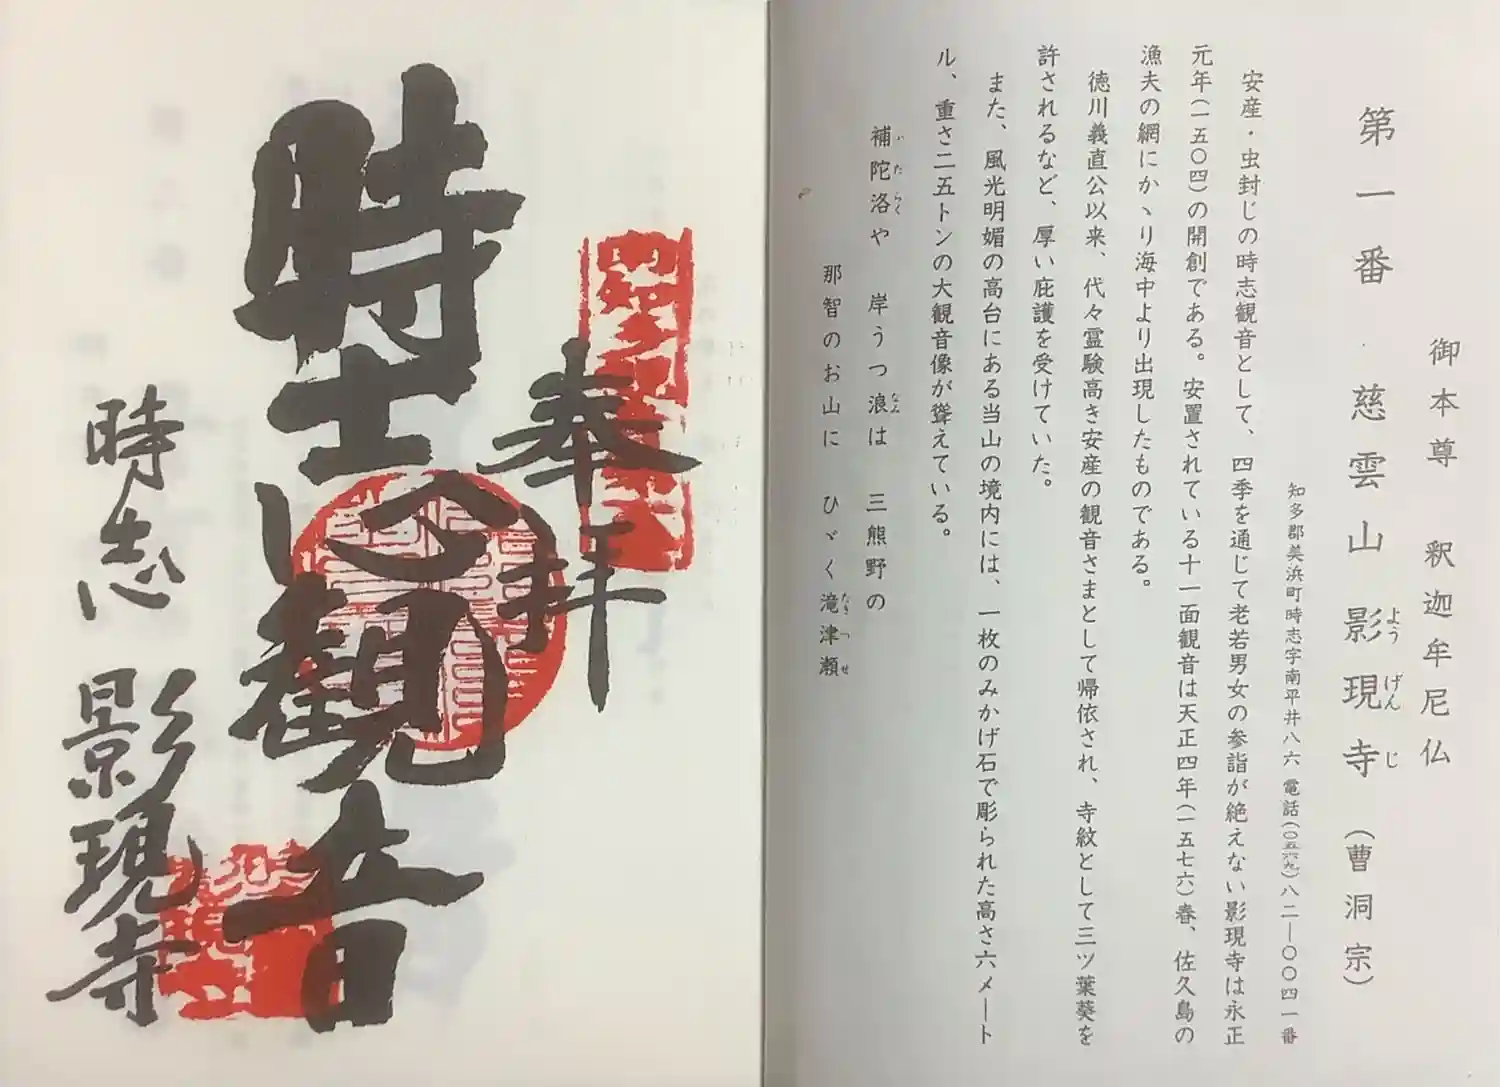 御本尊　釈迦牟尼仏
第一番　慈雲山　影現寺（曹洞宗）
よう げん じ
知多郡美浜町時志字南平井八六 電話(〇五六九)八二―〇〇四一番
安産・虫封じの時志観音として、四季を通じて老若男女の参詣が絶えない影現寺は永正
元年(一五〇四)の開創である。安置されている十一面観音は天正四年(一五七六)春、佐久島の
漁夫の網にかゝり海中より出現したものである。
徳川義直公以来、代々霊験高き安産の観音さまとして帰依され、寺紋として三ツ葉葵を
許されるなど、厚い庇護を受けていた。
また、風光明媚の高台にある当山の境内には、一枚のみかげ石で彫られた高さ六メート
ル、重さ二五トンの大観音像が聳えている。
補陀洛や　岸うつ浪は　三熊野の
ふ た らく なみ
那智のお山に　ひゞく滝津瀬
たき つ せ
奉拝
時志観音
時志　影現寺